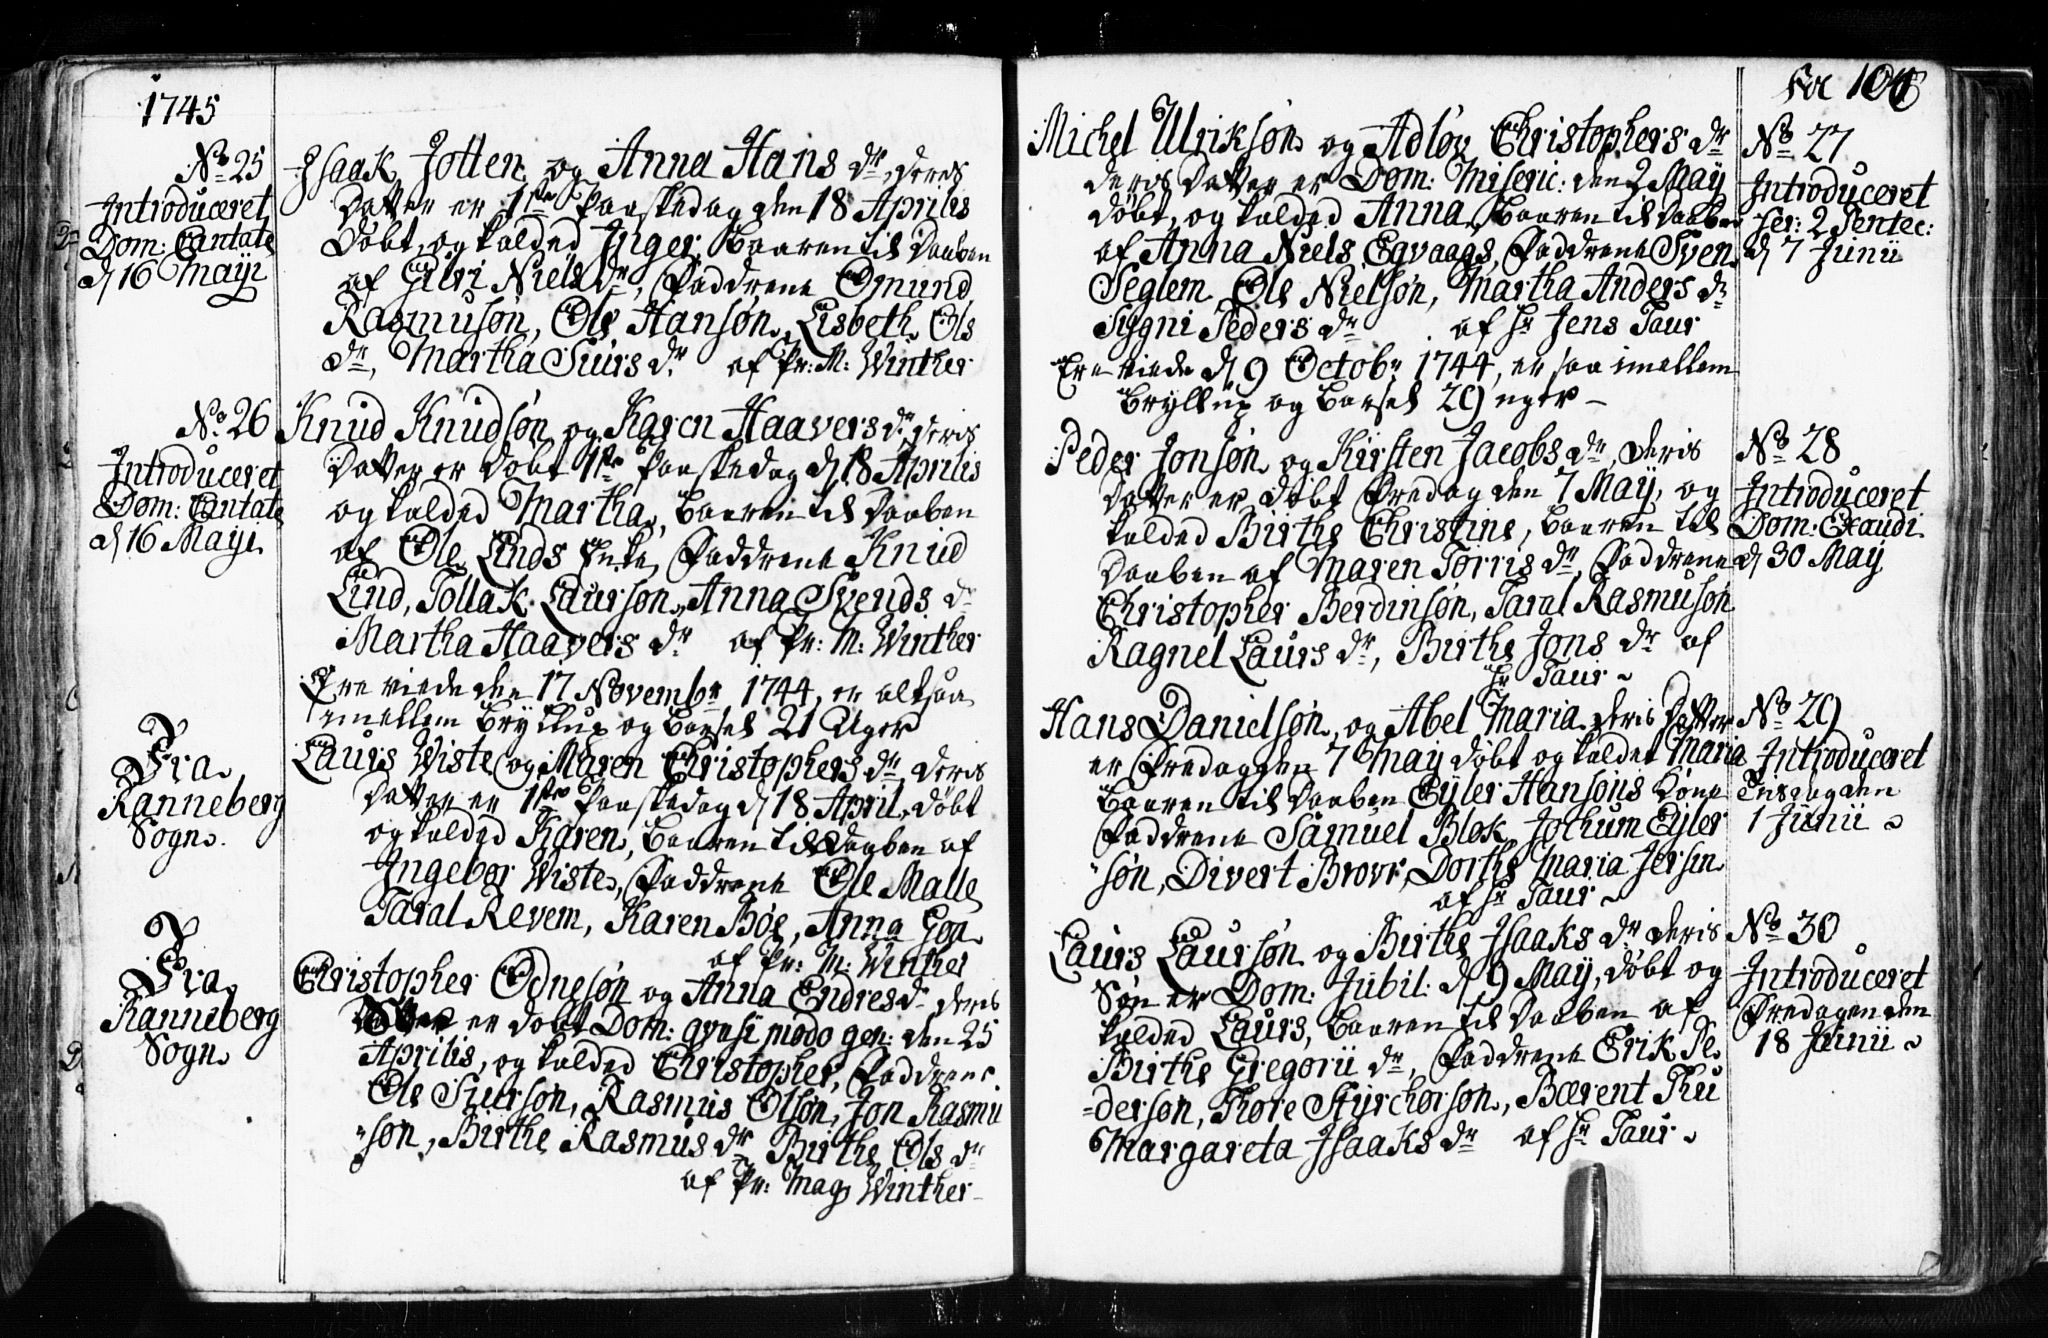 1745
No 25
Introduceret
Dom: Cantate
d 16 Mayi
Isaak Jotten og Anna Hans dr, deris
Datter er 1ste Paaskedag den 18 Aprilis
Døbt, og kalded Inger, baaren til Daaben
af Guri Niels dr, Faddrene Omund
Rasmusøn, Ole Hansøn, Lisbeth Ols
dr, Martha Siurs dr af Pr: M: Winther
No 26
Introduceret
Dom: Cantate
d 16 Mayi
Knud Knudsøn og Karen Haavers dr deris
Datter er døbt 1ste Paaskedag d 18 Aprilis
og kalded Martha, baaren til Daaben
af Ole Linds Enke, Faddrene Knud
Lind, Tollak Laursøn, Anna Svends dr
Martha Haavers dr af Pr: M: Winther
Ere viede den 17 Novembr 1744, er altsaa
imellem Bryllup og Barsel 21 Uger
Fra
Ranneberg
Sogn.
Laurs Wiste og Maren Christophers dr, deris
Datter er 1ste Paaskedag d 18 April, døbt
og kalded Karen, baaren til Daaben af
Ingebor Wiste, Faddrene Ole Malle
Taral Revem, Karen Bøe, Anna Goa
af Pr: M: Winther
Fra
Ranneberg
Sogn
Christopher Odnesøn og Anna Endres dr deris
er døbt Dom: qvasimodo gen: den 25
Aprilis, og kalded Christopher, Faddrene
Ole Siursøn, Rasmus Olsøn, Jon Rasmu
=søn, Birthe Rasmus dr Birthe Ols dr
af Pr: Mag Winther
Fol 100
Michel Ulriksøn og Adløv Christophers dr
deris Datter er Dom: Miseric: den 2 May
døbt, og kalded Anna, baaren til Daaben
af Anna Niels Egvaags, Faddrene Sven
Seglem Ole Nielsøn, Martha Anders dr
Sygni Peders dr af Hr Jens Taur
Ere viede d 9 Octobr 1744, er saa imellem
Bryllup og Barsel 29 uger
No 27
Introduceret
Fer: 2 Pentec:
d 7 Junii
Peder Jonsøn og Kirsten Jacobs dr, deris
Datter er døbt Fredag den 7 May, og
kalded Birthe Christine, baaren til
Daaben af Maren Tørris dr, Faddrene
Christopher Berdinsøn, Taral Rasmusøn
Ragnel Laurs dr, Birthe Jons dr af
Hr Taur
No 28
Introduceret
Dom: Exaudi
d 30 May
Hans Danielsøn, og Abel Maria deris Datter
er Fredag den 7 May døbt og kaldet Maria
baaren til Daaben Eyler Hansøns Kone
Faddrene Samuel Blok, Jochum Eyler
=søn, Divert Brovr, Dorthe Maria Jersin
af Hr Taur
No 29
Introduceret
Tirsdag den
1 Junii
Laurs Laursøn og Birthe Isaaks dr deris
Søn er Dom: Jubil: d 9 May, døbt og
kalded Laurs, baaren til Daaben af
Birthe Gregorii dr, Faddrene Erik Pe
=dersøn, Thore Styrchorsøn, Bærent Thu
Margareta Isaaks dr af Hr Taur
No 30
Introduceret
Fredagen den
18 Junii